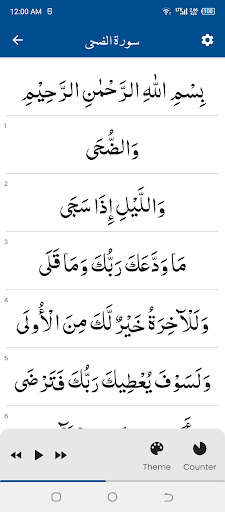 12:00 AM
سورة الضحى
بِسْمِ اللهِ الرَّحْمٰنِ الرَّحِيْمِ
1
وَالضُّحَى
2
وَاللَّيْلِ إِذَا سَجَى
3
مَا وَدَّعَكَ رَبُّكَ وَمَا قَلَى
4
وَلَلْآخِرَةُ خَيْرٌ لَّكَ مِنَ الْأُولَى
5
وَلَسَوْفَ يُعْطِيكَ رَبُّكَ فَتَرْضَى
6
Theme
Counter